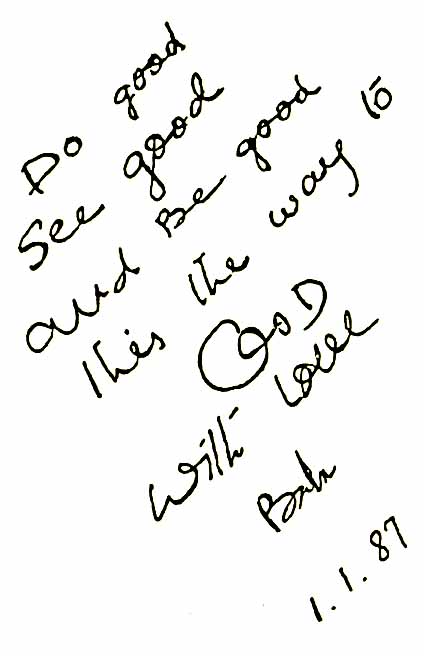 Do good
See good
and Be good
this the way to
GOD
with Love
Baba
1.1.87